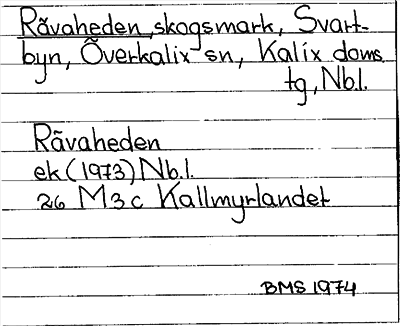 Råvaheden, skogsmark, Svart-
byn, Överkalix sn, Kalix doms.
tg, Nb.l.
Råvaheden
ek (1973) Nb.l.
26 M 3 c Kallmyrlandet
BMS 1974